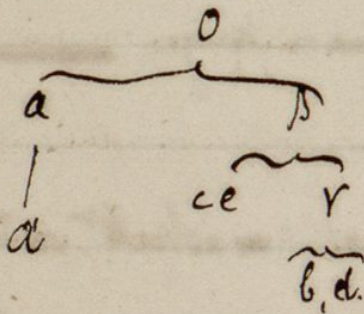 O
α β
a ce γ
b, d.